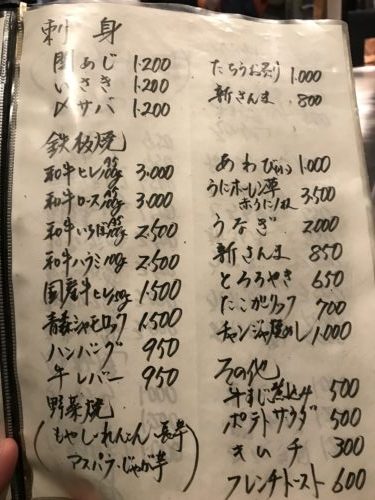 刺身
関あじ 1.200
いさき 1.200
〆サバ 1.200
鉄板焼
和牛ヒレ100g 3.000
和牛ロース100g 3.000
和牛いちぼ100g 2.500
和牛ハラミ100g 2.500
国産牛ヒレ50g 1.500
青森シャモロック 1.500
ハンバーグ 950
牛レバー 950
野菜焼
(もやし・れんこん 長芋
アスパラ・じゃが芋)
たちうおあぶり 1.000
新さんま 800
あわび 1.000
うにホーレン草 3.500
うなぎ 2.000
新さんま 850
とろろやき 650
たこガーリック 700
チャンジャ石焼めし 1.000
その他
牛すじ煮込み 500
ポテトサラダ 500
キムチ 300
フレンチトースト 600